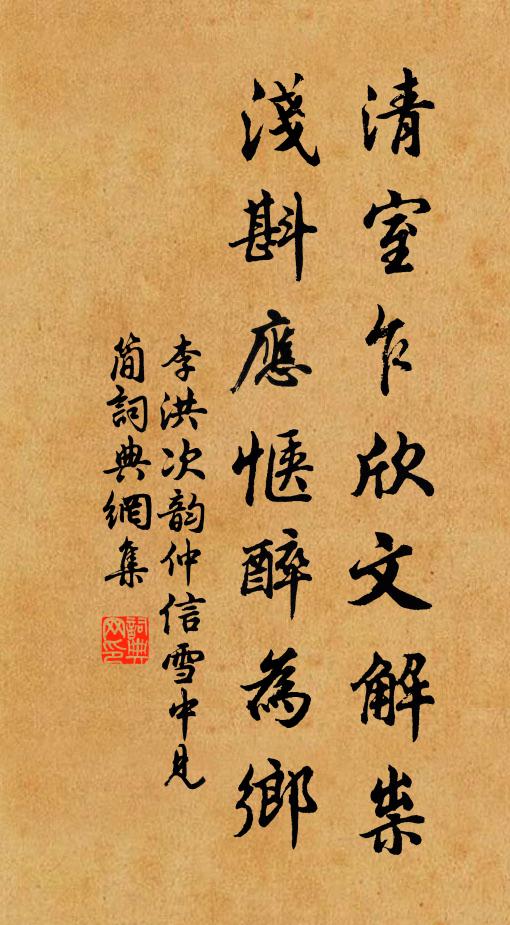 清室乍欣文解祟
淺斟應愜醉為鄉
李洪次韵仲信雪中見
簡詞典網集
詞典網印